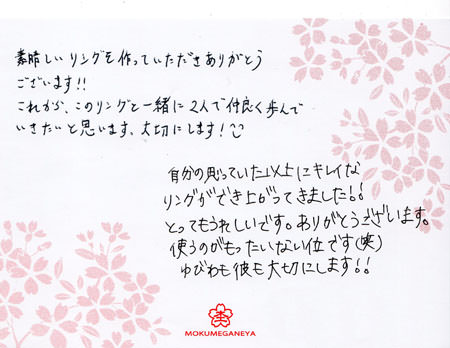 素晴しいリングを作っていただきありがとう
ございます!!
これから、このリングと一緒に2人で仲良く歩んで
いきたいと思います、大切にします!
自分の思っていた以上にキレイな
リングができ上がってきました!!
とってもうれしいです。ありがとうございます。
使うのがもったいない位です(笑)
ゆびわも彼も大切にします!!
MOKUMEGANEYA